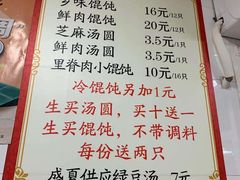 乡味馄饨 16元/12只
鲜肉馄饨 20元/12只
芝麻汤圆 3.5元/1只
鲜肉汤圆 3.5元/1只
里脊肉小馄饨 10元/16只
冷馄饨另加1元
生买汤圆，买十送一
生买馄饨，不带调料
每份送两只
盛夏供应绿豆汤 7元